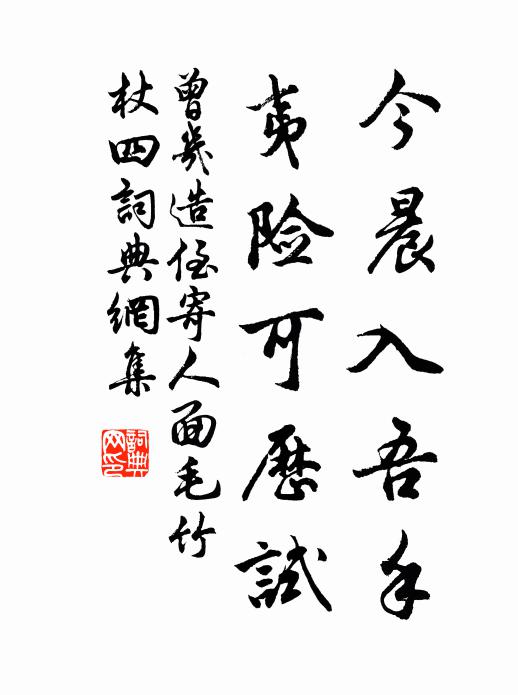 今晨入吾手
夷险可歷試
曾幾造侄寄人面毛竹
杖四詞典網集
詞典網印